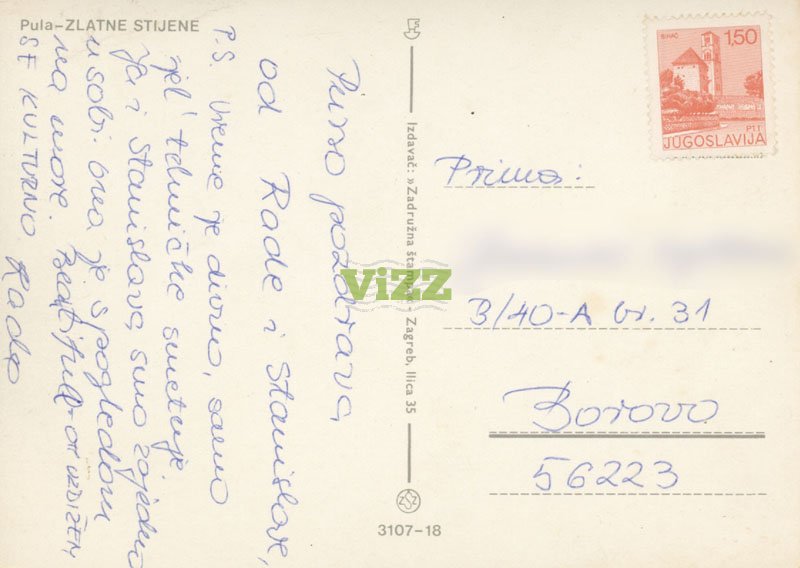 Pula-ZLATNE STIJENE
Puno pozdrava,
od Rade i Stanislave,
P.S. Vreme je divno, samo
tehničke smetnje
Ja i Stanislava smo zajedno
u sobi ona je s pogledom
na more.
SE KULTURNO Rade
Izdavač: »Zadružna štampa« - Zagreb, Ilica 35
3107-18
BIHAĆ
1,50
PTT
JUGOSLAVIJA
Prima:
B/40-A br. 31
Borovo
56223
ViZZ